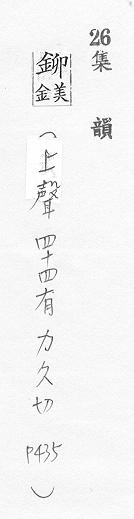 26集韻
鉚
金美
(上聲四十四有力久切P435)